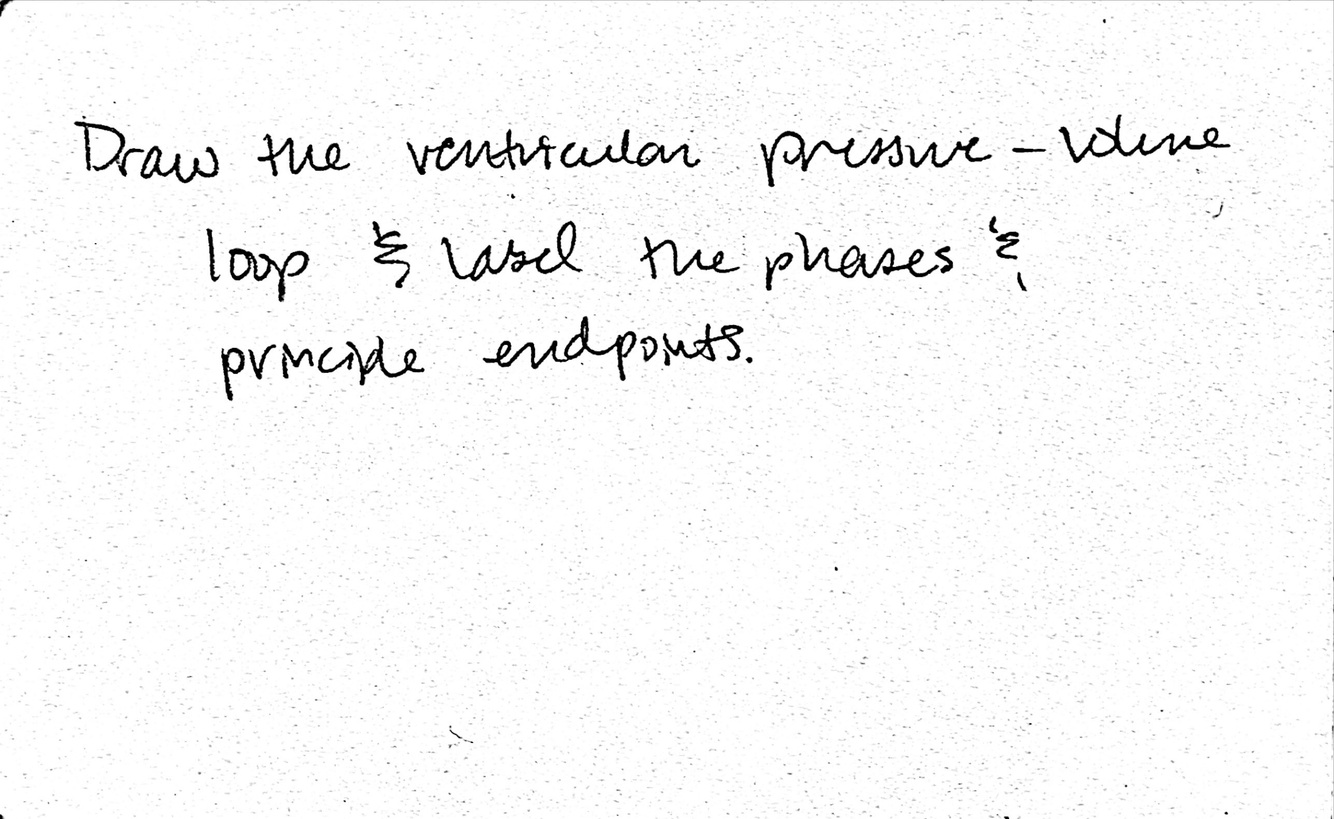 Draw the ventricular pressure - volume
loop & label the phases &
principle endpoints.